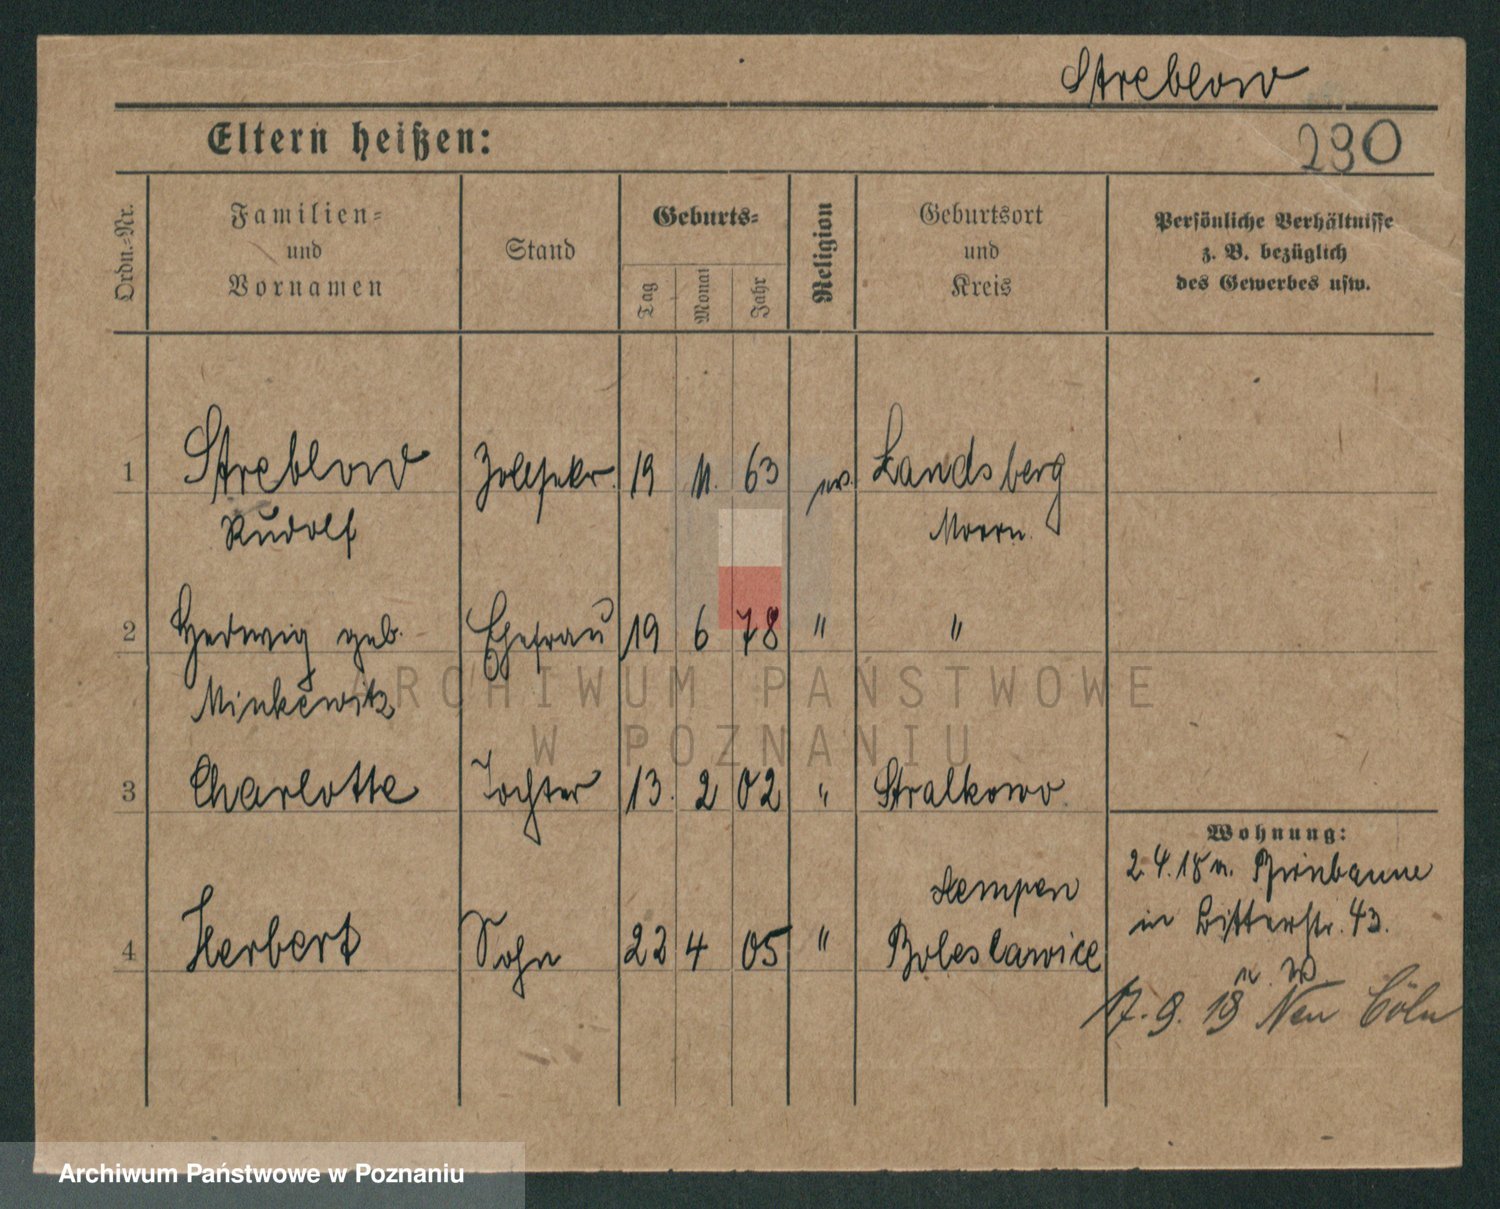 Streblow
Eltern heißen:
290
Ordn.-Nr.
Familien-
und
Vornamen
Stand
Geburts-
Tag
Monat
Jahr
Religion
Geburtsort
und
Kreis
Persönliche Verhältnisse
z. B. bezüglich
des Gewerbes usw.
1 Streblow Zollsekr. 19 11. 63 ev. Landsberg
Rudolf Morrn
2 Hedwig geb. Ehefrau 19 6 78 " "
Minkewitz
3 Charlotte Tochter 13. 2 02 " Stralkowo
Wohnung:
2.4.18 v. Birnbaume
Kempen
in Bitterstr. 43.
4 Herbert Sohn 22 4 05 " Boleslawice
n. W
17.9.19 Neu Cöln
ARCHIWUM PAŃSTWOWE
W POZNANIU
Archiwum Państwowe w Poznaniu